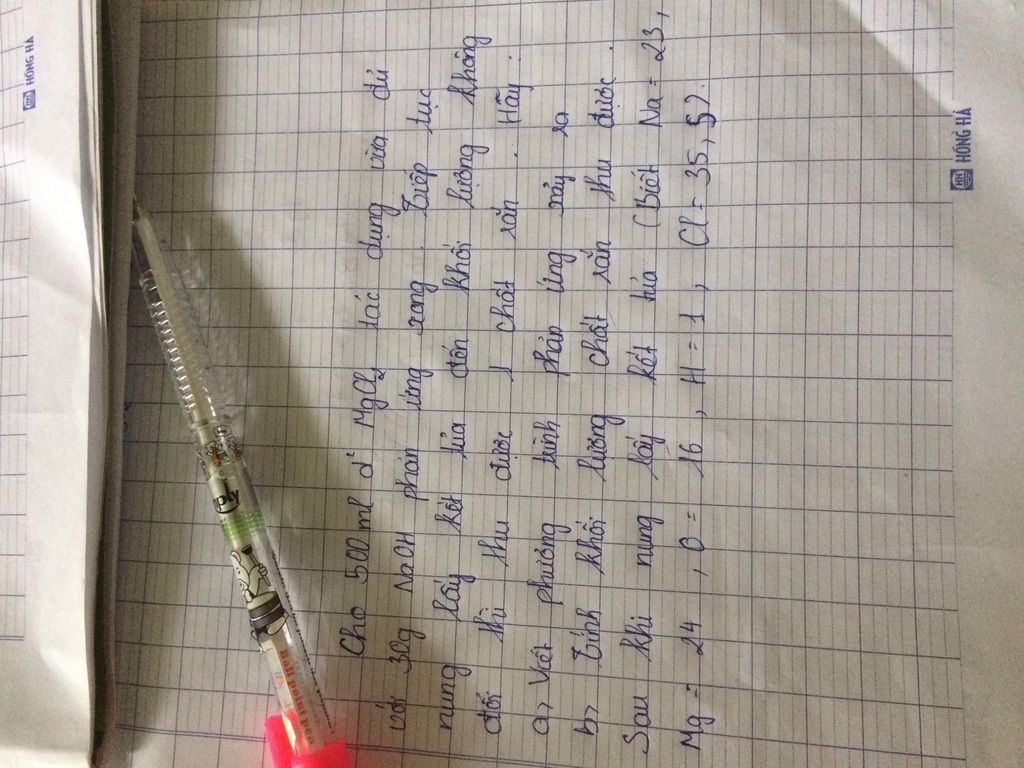 Cho 500ml d² MgCl₂ tác dụng vừa đủ
với 30g NaOH phản ứng xong. Tiếp tục
nung lấy kết tủa đến khối lượng không
đổi thì thu được 1 chất rắn. Hãy:
a> Viết phương trình phản ứng xảy ra
b> Tính khối lượng chất rắn thu được
Sau khi nung lấy kết tủa (Biết Na = 23,
Mg = 24, O = 16, H = 1, Cl = 35,5).
HH HỒNG HÀ
HH HỒNG HÀ
ply
Ball point pen